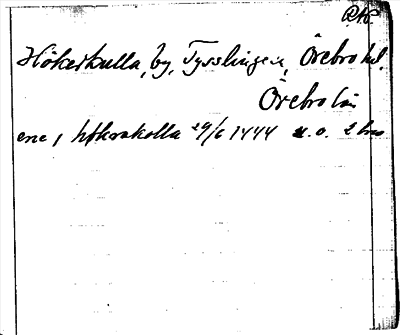 Hökerkulla, by, Tysslinge s, Örebro hd.
Örebro län
ene, hökrakolla 29/6 1444 u. o. 2 brev